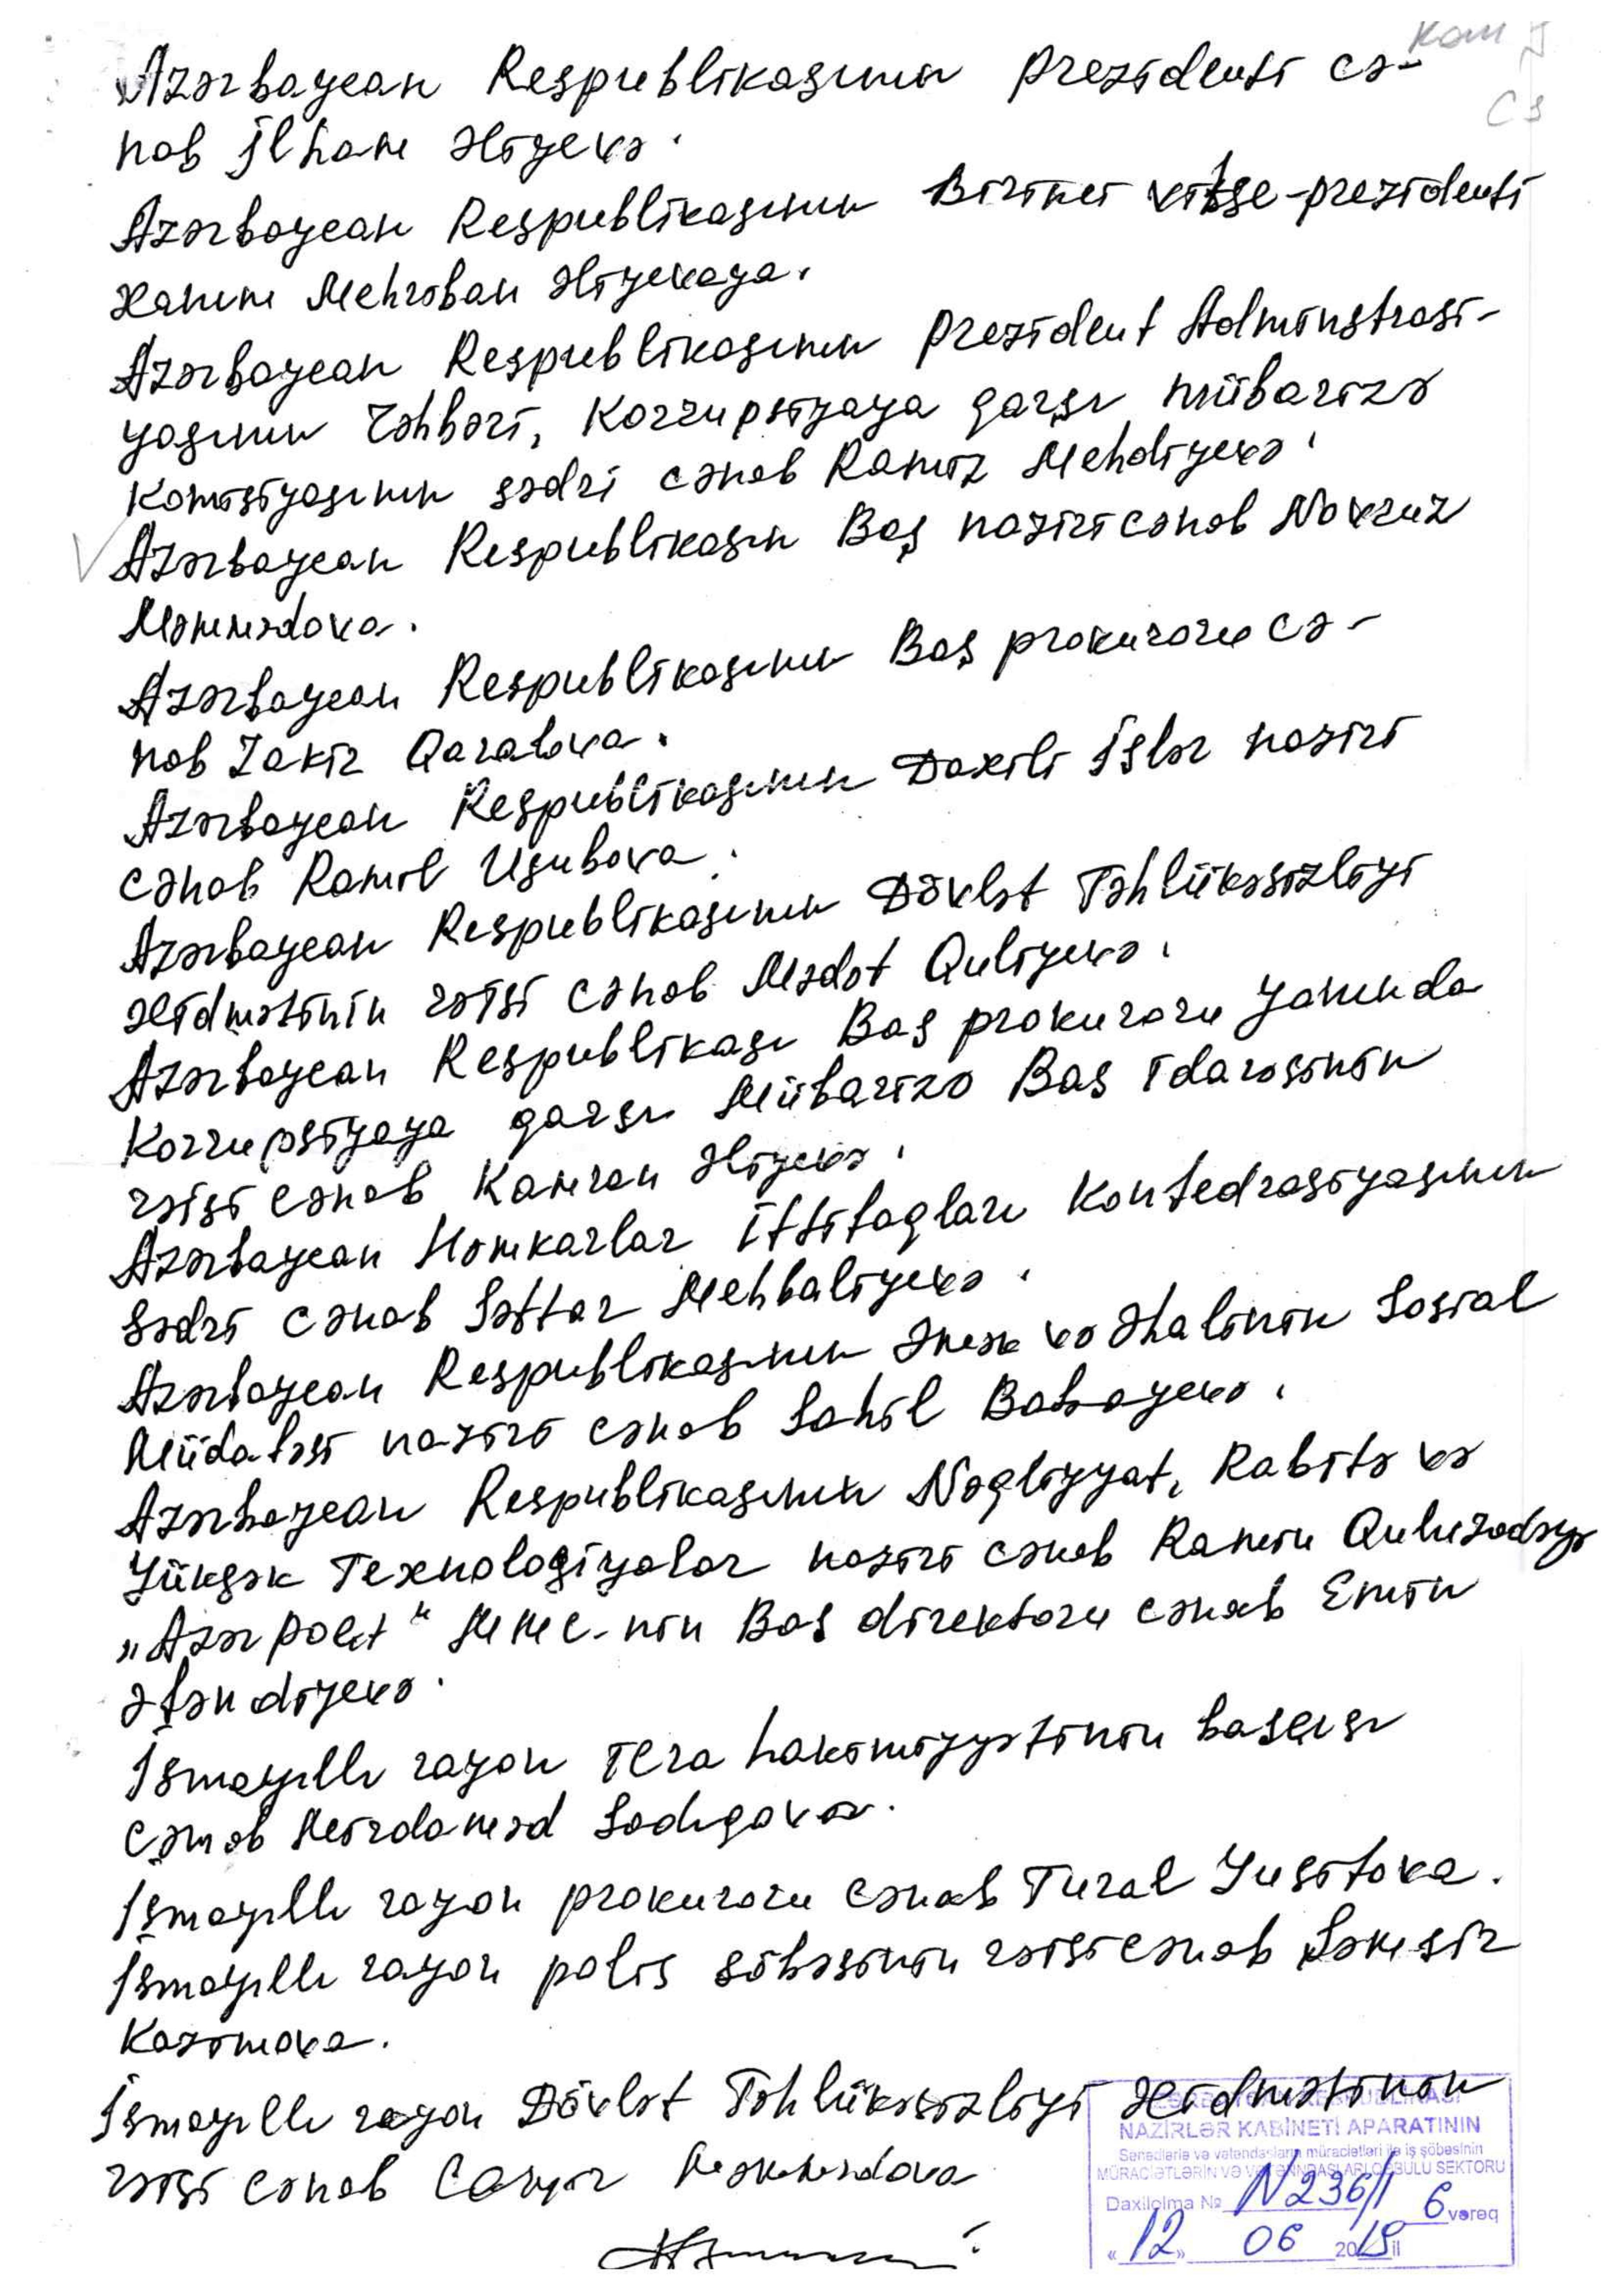 Kom
Azərbaycan Respublikasının prezidenti cə-
nab İlham Əliyevə.
Azərbaycan Respublikasının Birinci vitse-prezidenti
Xanım Mehriban Əliyevaya.
Azərbaycan Respublikasının Prezident Adminstrasi-
yasının rəhbəri, Korrupsiyaya qarşı mübarizə
Komisiyasının sədri cənab Ramiz Mehdiyevə.
Azərbaycan Respublikasın Baş naziri cənab Novruz
Məmmədova.
Azərbaycan Respublikasının Baş prokuroru cə-
nab Zakir Qaralova.
Azərbaycan Respublikasının Daxili İşlər naziri
cənab Ramil Usubova.
Azərbaycan Respublikasının Dövlət Təhlükəsizliyi
Xidmətinin rəisi cənab Mədət Quliyevə.
Azərbaycan Respublikası Baş prokuroru yanında
Korrupsiyaya qarşı Mübarizə Baş idarəsinin
rəisi cənab Kamran Əliyevə.
Azərbaycan Həmkarlar İttifaqları Konfedrasiyasının
Sədri cənab Səttar Mehbalıyevə.
Azərbaycan Respublikasının Əmək və Əhalinin Sosial
Müdafəsi naziri cənab Sahil Babayevə.
Azərbaycan Respublikasının Nəqliyyat, Rabitə və
Yüksək Texnologiyalar naziri cənab Ramin Quluzadəyə
"Azərpoçt" MMC-nin Baş direktoru cənab Emin
Əfəndiyevə.
İsmayıllı rayon İcra hakimiyyətinin başçısı
cənab Mirdaməd Sadıqova.
İsmayıllı rayon prokuroru cənab Tural Yusifova.
İsmayıllı rayon polis şöbəsinin rəisi cənab Şəmsir
Kazımova.
İsmayıllı rayon Dövlət Təhlükəsizliyi Xidmətinin
rəisi cənab Məmmədova
NAZİRLƏR KABİNETİ APARATININ
Sənədlərlə və vətəndaşların müraciətləri ilə iş şöbəsinin
MÜRACİƏTLƏRİN VƏ QƏBULU SEKTORU
Daxilolma № N236/1 6 vərəq
«12» 06 2019 il